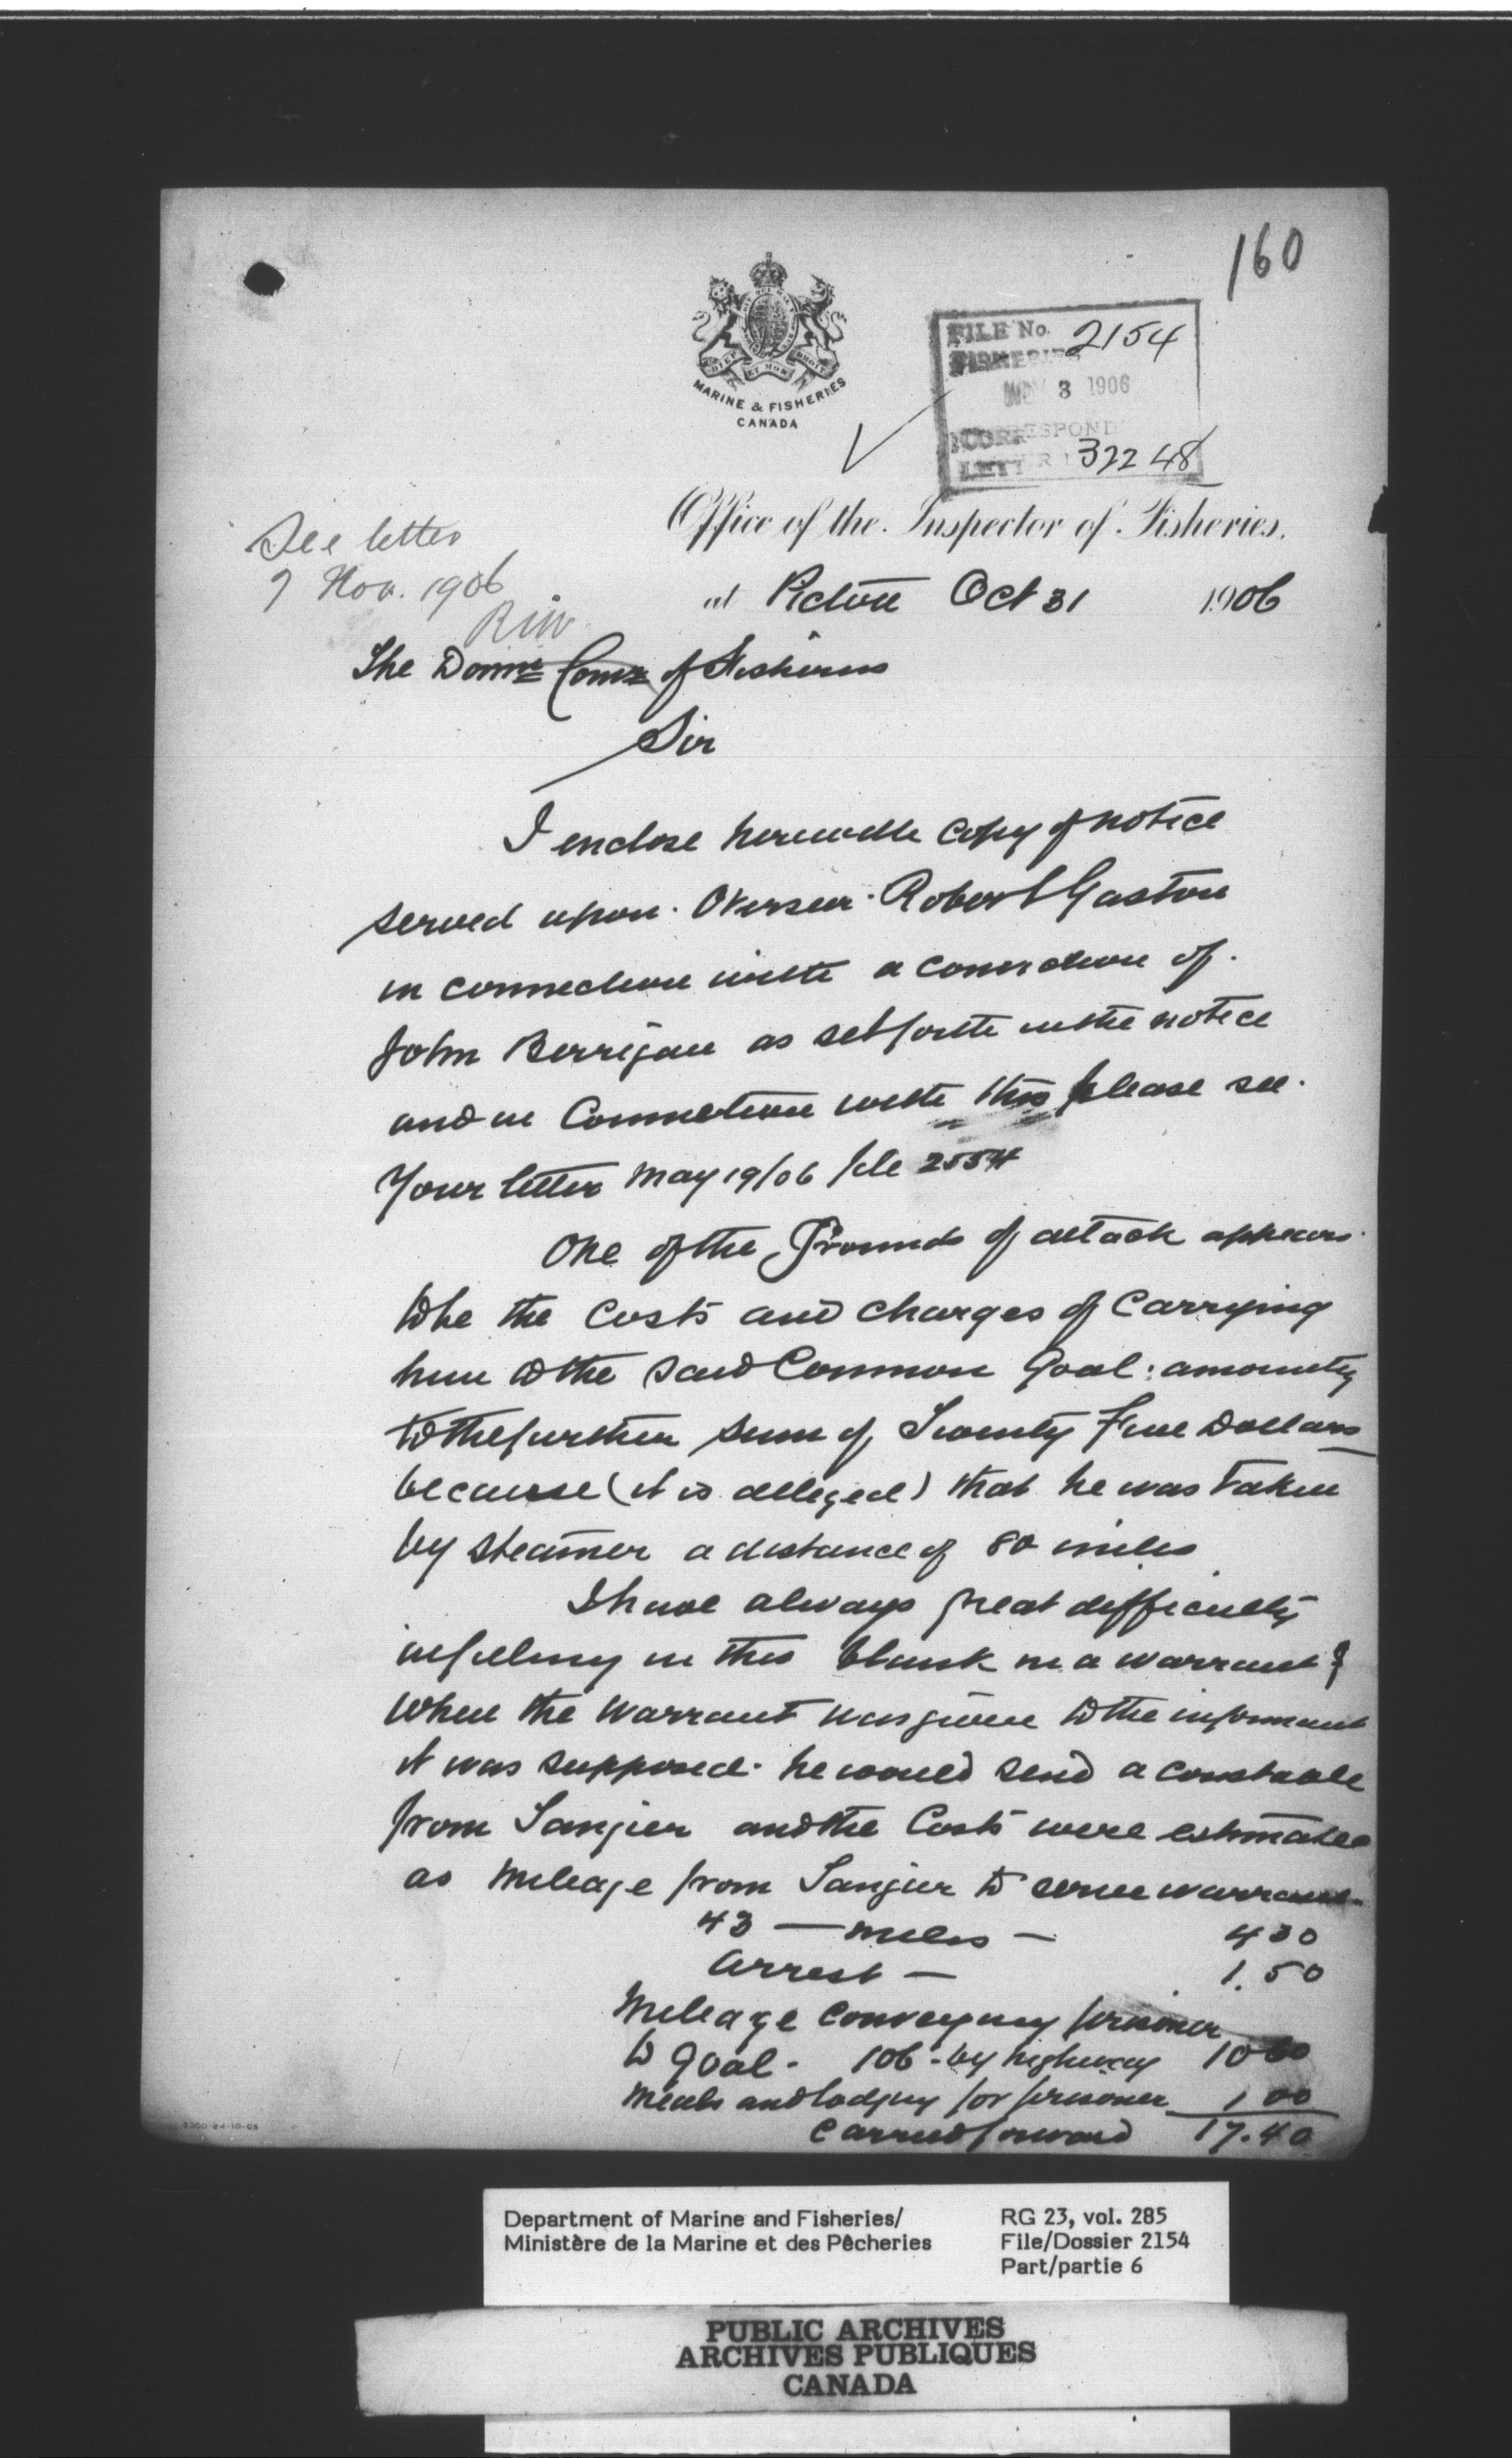 160
DIEU ET MON DROIT
MARINE & FISHERIES
CANADA
FILE No. 2154
FISHERIES
NOV 3 1906
CORRESPOND
LETTER 32248
Office of the Inspector of Fisheries.
See letter
7 Nov. 1906
at Pictou Oct 31 1906
The Domn Comr of Fisheries
Sir
I enclose herewith copy of notice
served upon Overseer Robert Gaston
in connection with a conviction of
John Berrigan as set forth in the notice
and in Connection with this please see
Your letter May 19/06 file 2554
One of the Grounds of attack appears
to be the Costs and charges of Carrying
him to the said Common Goal: amounting
to the further sum of Twenty Five Dollars
because (it is alleged) that he was taken
by steamer a distance of 80 miles
I have always great difficulty
in filling in this blank in a warrant &
when the warrant was given to the informant
it was supposed he would send a constable
from Tangier and the Costs were estimated
as mileage from Tangier to serve warrant
43 — miles — 4 30
Arrest — 1.50
Mileage conveying prisoner
to goal - 106 - by highway 10 60
Meals and lodging for prisoner 1 00
Carried forward 17.40
5000-24-10-05
Department of Marine and Fisheries/
Ministère de la Marine et des Pêcheries
RG 23, vol. 285
File/Dossier 2154
Part/partie 6
PUBLIC ARCHIVES
ARCHIVES PUBLIQUES
CANADA